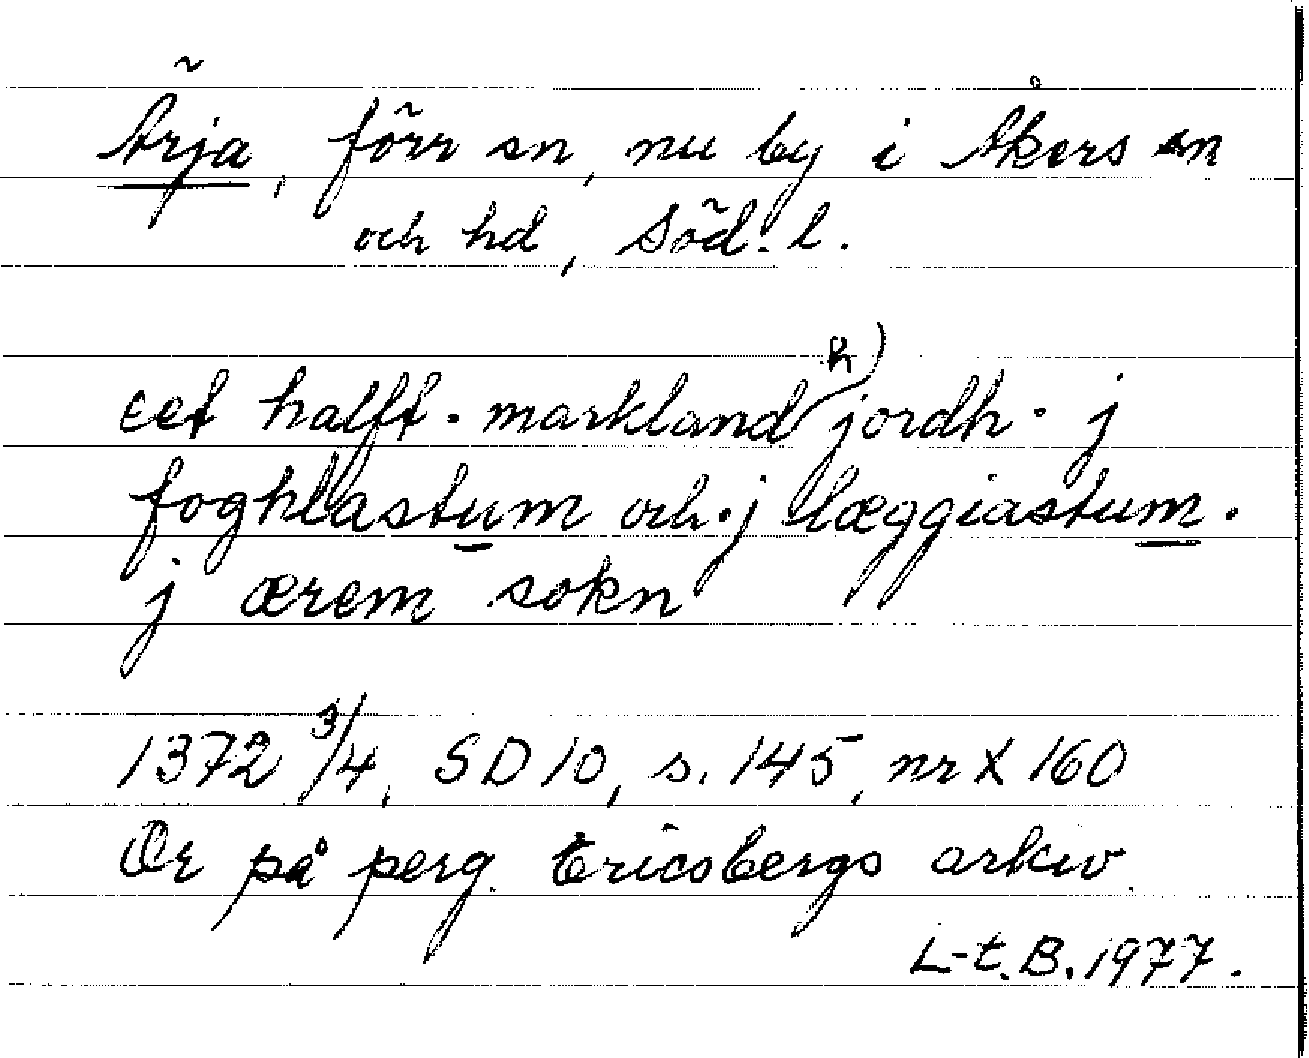 Ärja, förr sn, nu by i Åkers sn
och hd, Söd. l.
eet halfft · markland h) jordh · j
foghlastum och · j læggiastum ·
j ærem sokn
1372 3/4, SD 10, s. 145, nr X 160
Or på perg. Ericsbergs arkiv
L-t. B. 1977.